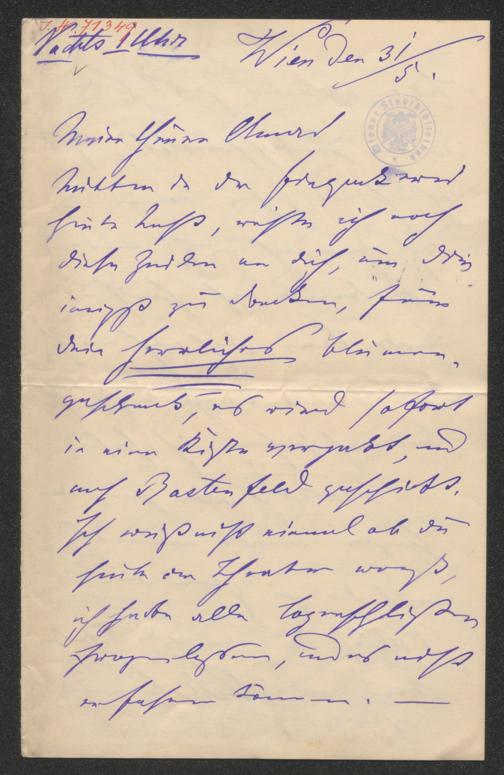 I.N. 71349
Nachts 1 Uhr
Wien den 31/5.
Wiener Stadtbibliothek
Mein theurer Eduard
Mitten in der
heute Nacht, richte ich noch
diese Zeilen an dich, um Dir
innigst zu danken, für
dein herrliches Blumen-
geschenk, es wird sofort
in eine Kiste verpackt, und
nach Bastenfeld geschickt.
Ich weiß nicht einmal ob du
heute im Theater warst,
ich habe alle Logenschließer
fragen lassen, und es nicht
erfahren können. —